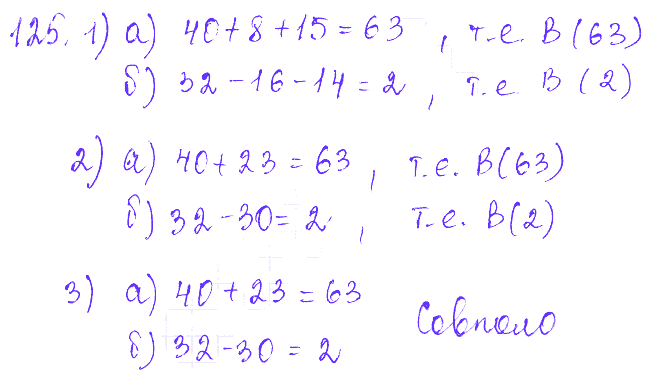 125. 1) а) 40+8+15=63, т.е. В(63)
б) 32-16-14=2, т.е. В(2)
2) а) 40+23=63, т.е. В(63)
б) 32-30=2, т.е. В(2)
3) а) 40+23=63
Совпало
б) 32-30=2